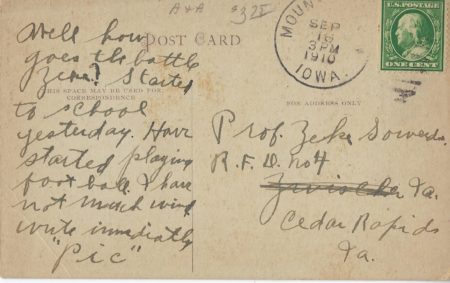 A & A
$3.25
POST CARD
THIS SPACE MAY BE USED FOR
CORRESPONDENCE
Well how
goes the battle
Zeke? Started
to school
yesterday. Have
started playing
foot ball. I have
not much wind
write immediately
"Pic"
MOUN
SEP
16
3 PM
1910
IOWA.
U.S. POSTAGE
ONE CENT
FOR ADDRESS ONLY
Prof. Zeke Sowers.
R.F.D. No 4
Ia.
Cedar Rapids
Ia.